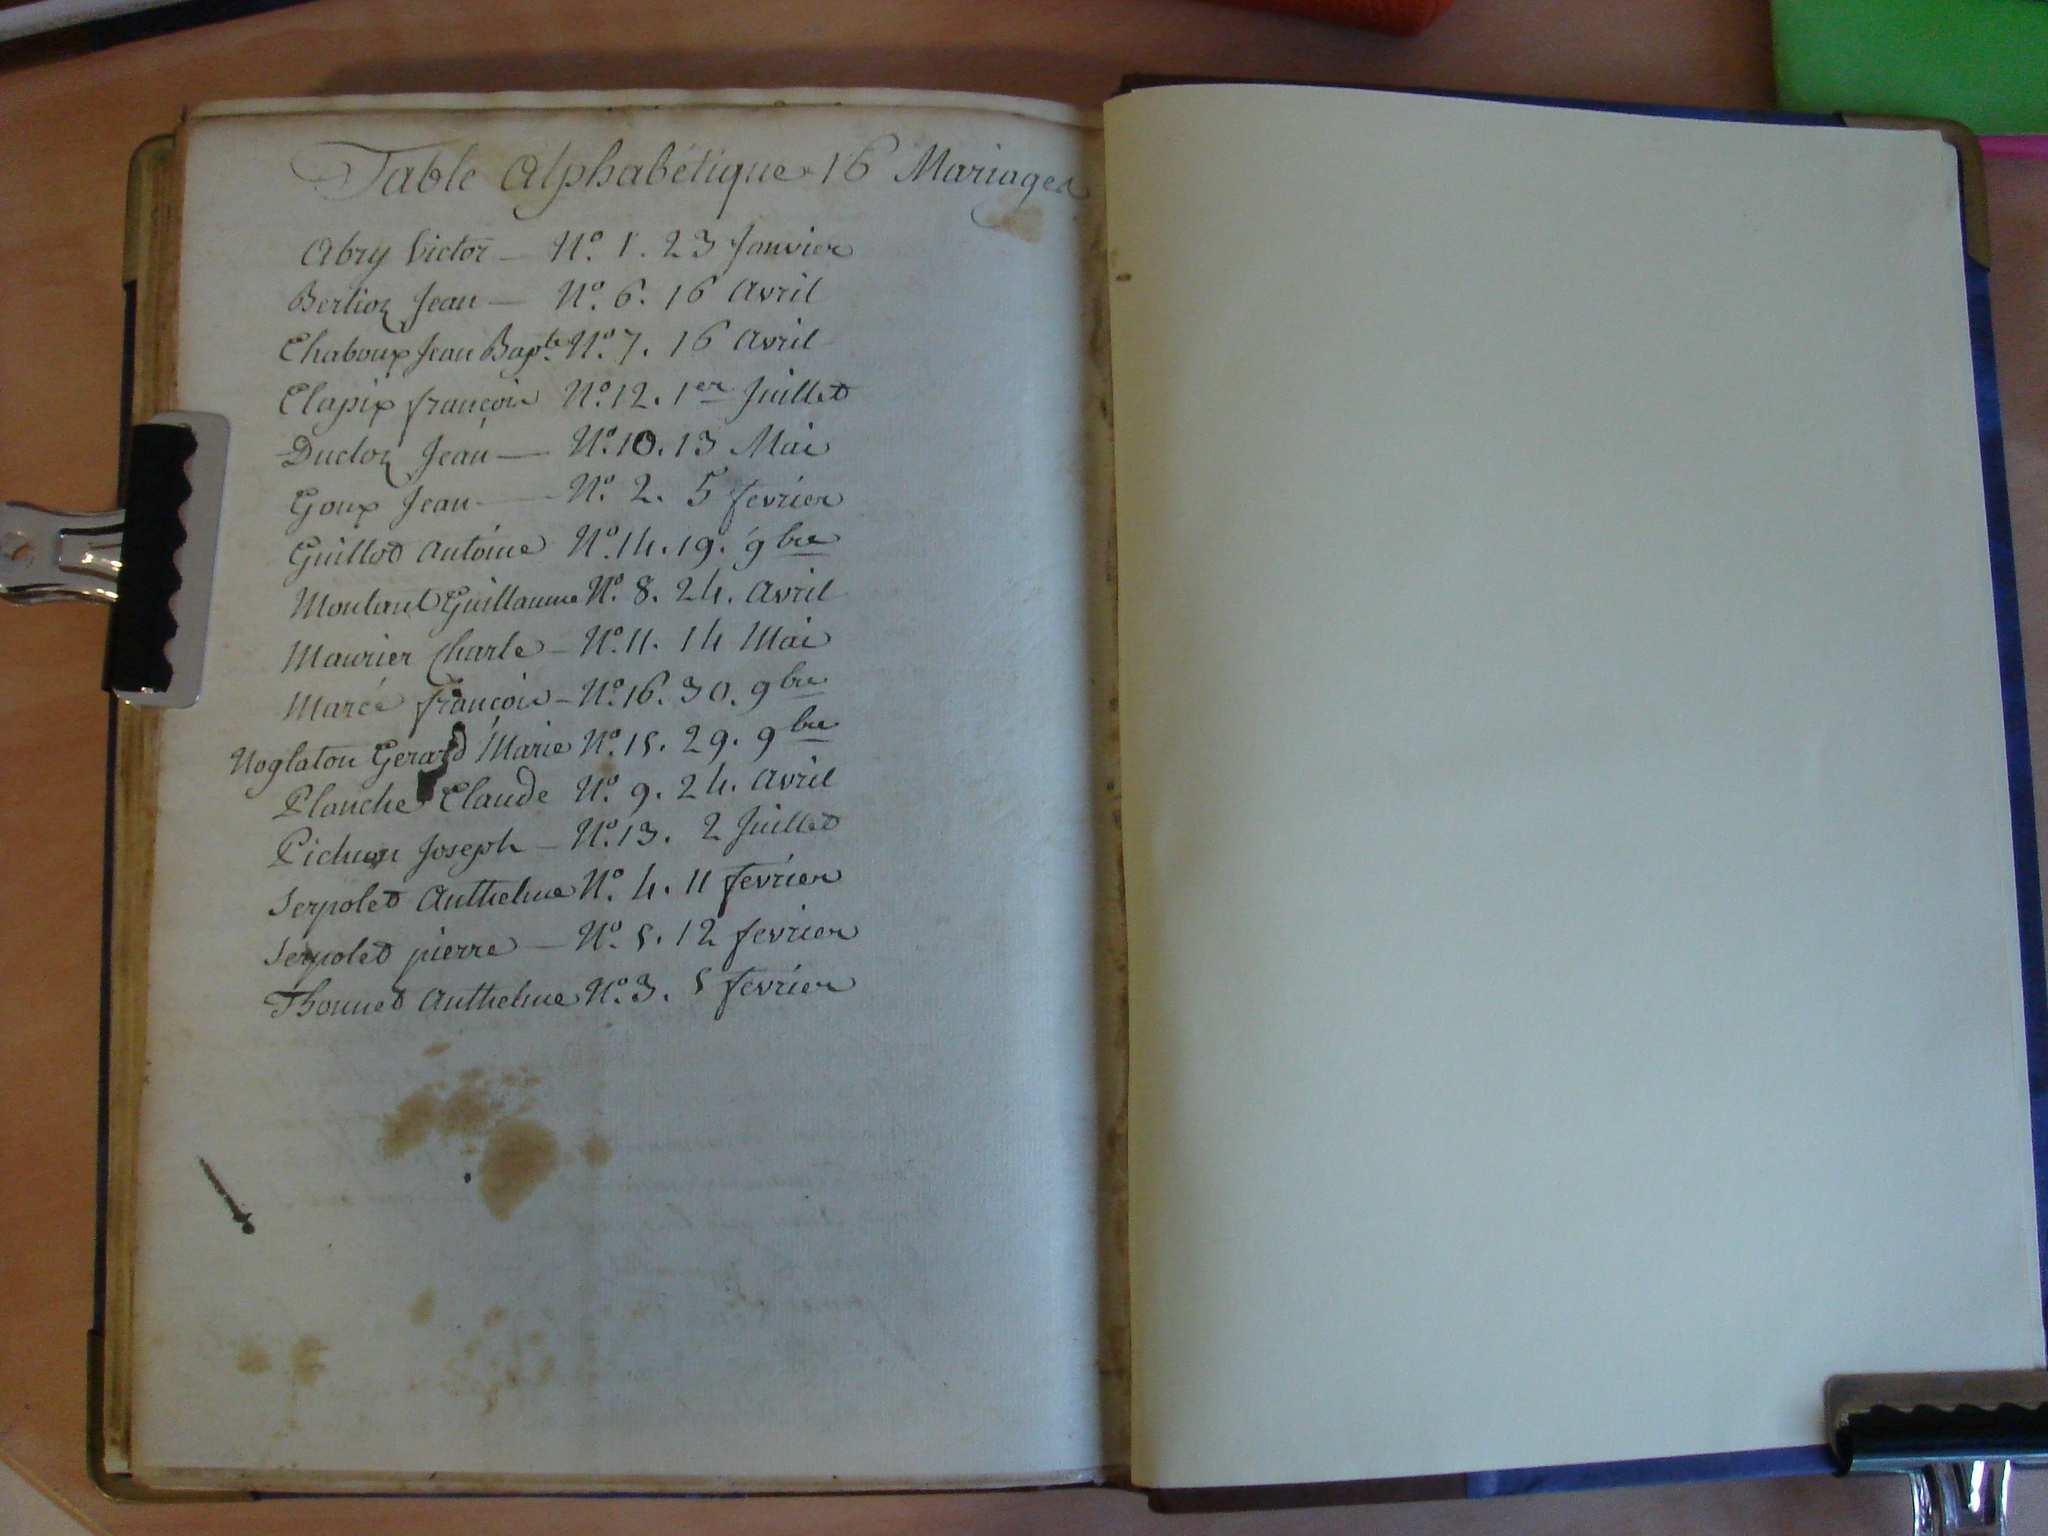 Table Alphabétique 16 Mariages
Abry Victor — N.º 1. 23 Janvier
Berlioz Jean — N.º 6. 16 Avril
Chaboux Jean Bap.te N.º 7. 16 Avril
Clapix françois N.º 12. 1er Juillet
Ducloz Jean — N.º 10. 13 Mai
Goux Jean — N.º 2. 5 fevrier
Guillot Antoine N.º 14. 19. 9bre
Guillaume N.º 8. 24. Avril
Maurier Charle — N.º 11. 14 Mai
Marcé françois — N.º 16. 30. 9bre
Noglaton Gerard Marie N.º 15. 29. 9bre
Planche Claude N.º 9. 24. Avril
Pichon Joseph — N.º 13. 2 Juillet
Serpolet Anthelme N.º 4. 11 fevrier
Serpolet pierre — N.º 5. 12 fevrier
Thonnet Anthelme N.º 3. 5 fevrier